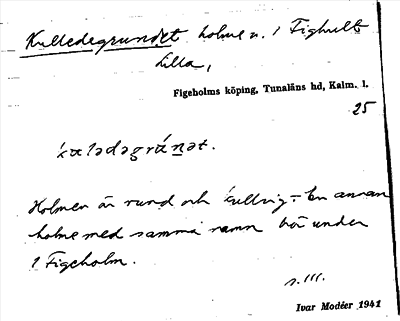 Kulledegrundet holme u. 1 Fighult
Lilla,
Figeholms köping, Tunaläns hd, Kalm. l.
25
kalədəgránət.
Holmen är rund och kullrig. En annan
holme med samma namn hör under
1 Figeholm.
s. III.
Ivar Modéer 1941